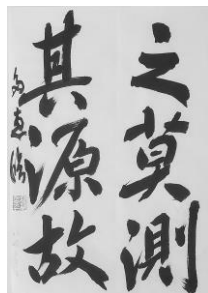 之莫測
其源故